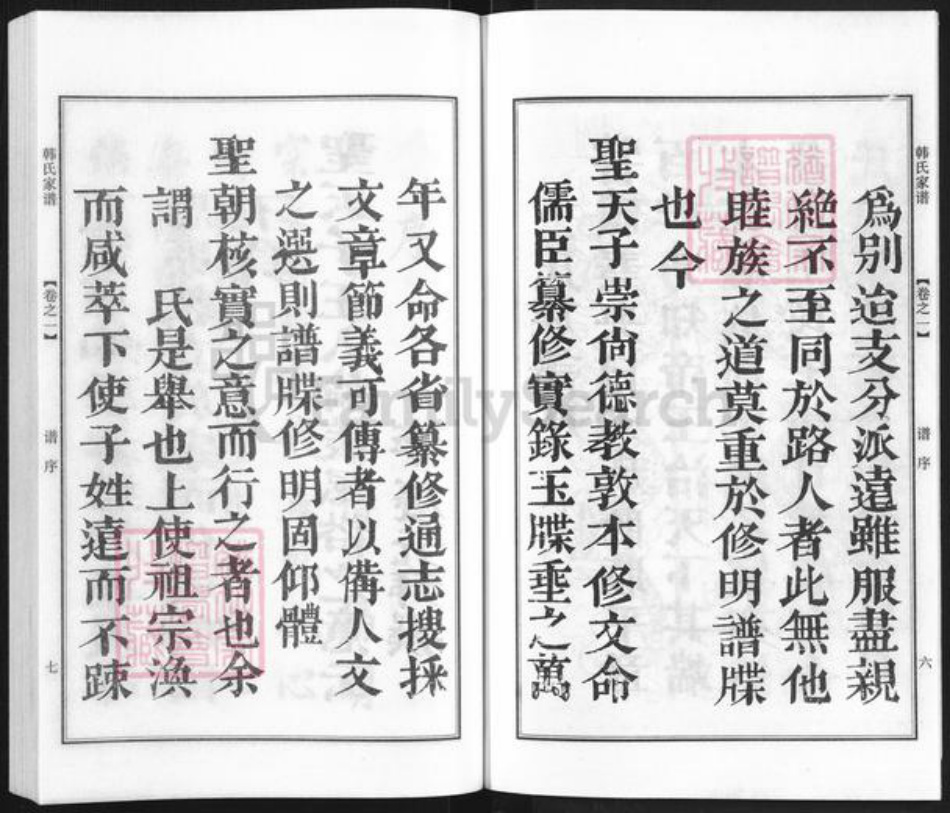 韩氏家谱
【卷之一】
谱序
六
爲别迨支分派遠雖服盡親
絶不至同於路人者此無他
睦族之道莫重於修明譜牒
也今
聖天子崇尙德教敦本修文命
儒臣纂修實錄玉牒垂之萬
年又命各省纂修通志搜採
文章節義可傳者以備人文
之選則譜牒修明固仰體
聖朝核實之意而行之者也余
謂 氏是舉也上使祖宗渙
而咸萃下使子姓遠而不踈
韩氏家谱
【卷之一】
谱序
七
FamilySearch